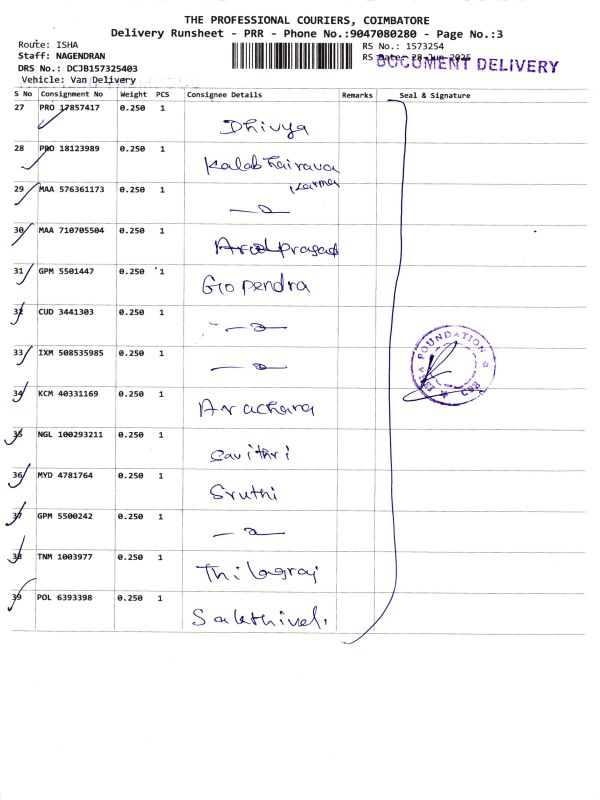 THE PROFESSIONAL COURIERS, COIMBATORE
Delivery Runsheet - PRR - Phone No.:9047080280 - Page No.:3
Route: ISHA
Staff: NAGENDRAN
DRS No.: DCJB157325403
Vehicle: Van Delivery
RS No.: 1573254
RS Date: 28-Jun-2025
DOCUMENT DELIVERY
S No Consignment No Weight PCS Consignee Details Remarks Seal & Signature
27 PRO 17857417 0.250 1 Dhivya
28 PRO 18123989 0.250 1 Kalabhairava
Karma
29 MAA 576361173 0.250 1
30 MAA 710705504 0.250 1 Arul prasad
31 GPM 5501447 0.250 1 Gopendra
32 CUD 3441303 0.250 1
33 IXM 508535985 0.250 1
34 KCM 40331169 0.250 1 Arachana
35 NGL 100293211 0.250 1 Savithri
36 MYD 4781764 0.250 1 Sruthi
37 GPM 5500242 0.250 1
38 TNM 1003977 0.250 1 Thilagraj
39 POL 6393398 0.250 1 Sakthivel
ISHA FOUNDATION
CBE